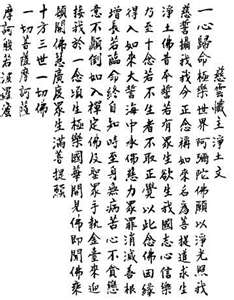 慈雲懺主淨土文
一心歸命極樂世界阿彌陀佛願以淨光照我
慈誓攝我我今正念稱如來名為菩提道求生
淨土佛昔本誓若有眾生欲生我國志心信樂
乃至十念若不生者不取正覺以此念佛因緣
得入如來大誓海中承佛慈力眾罪消滅善根
增長若臨命終自知時至身無病苦心不貪戀
意不顛倒如入禪定佛及聖眾手執金臺來迎
接我於一念頃生極樂國華開見佛即聞佛乘
頓開佛慧廣度眾生滿菩提願
十方三世一切佛
一切菩薩摩訶薩
摩訶般若波羅蜜